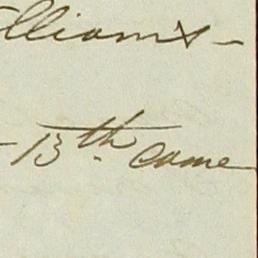 lliams -
- 13th. came